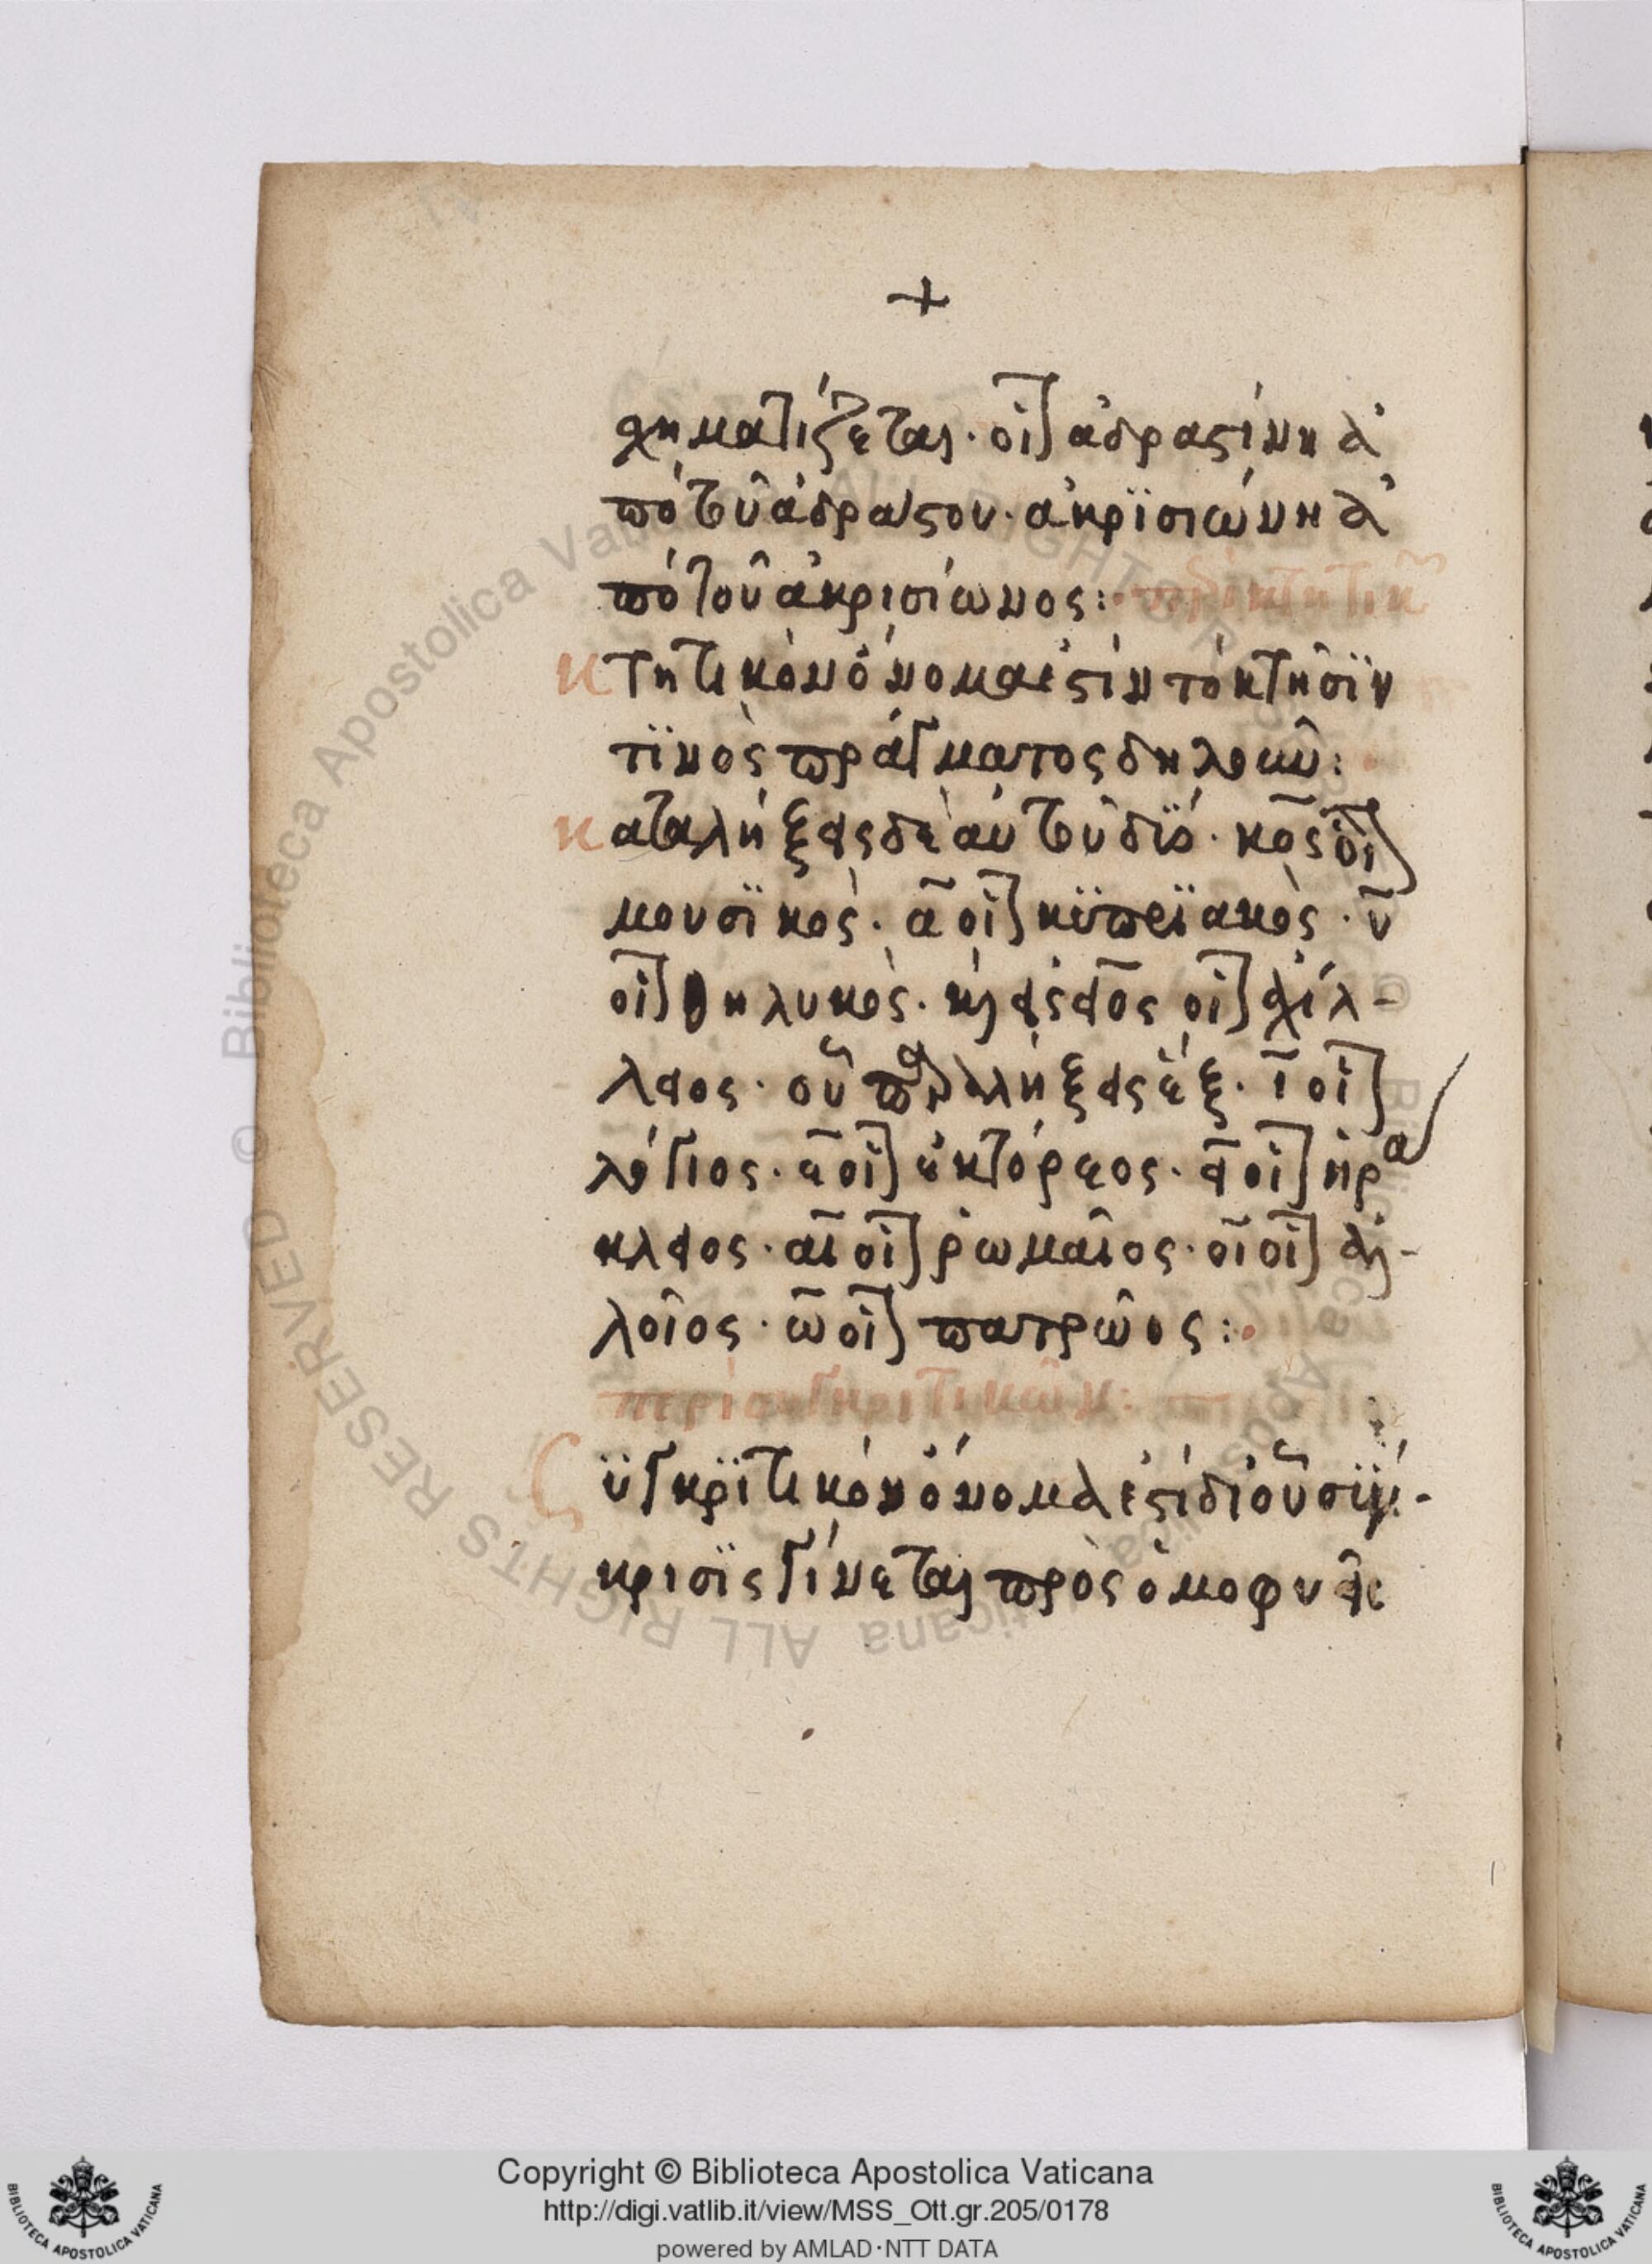 +
χηματίζεται· οἷ(ον) ἀδραστίνη ἀ
πὸ τοῦ ἀδράστου· ἀκρϊσιώνη ἀ
πὸ τοῦ ἀκρισίωνος: περὶ κτητικῶν
κτητικὸν ὄνομα ἐστὶν τὸ κτῆσϊν
τϊνὸς πράγματος δηλοῦν:
καταλήξεις δὲ αὐτοῦ δϊὸ· κο̅ς οἷ(ον)
μουσϊκὸς· α̅ οἷ(ον) κϋπρϊακὸς· υ̅
οἷ(ον) θηλυκὸς· καὶ εἰς ειο̅ς οἷ(ον) ἀχίλ-
λειος· οὗ παραλήξεις ἓξ· ι̅ οἷ(ον)
λόγιος· ε̅ οἷ(ον) ἑκτόρεος· ει̅ οἷ(ον) ἡρα
κλειος· αι̅ οἷ(ον) ῥωμαῖος· οι̅ οἷ(ον) αἰ-
λοῖος· ω̅ οἷ(ον) πατρῶος:
περὶ συγκριτικῶν:
Σϋγκρϊτικὸν ὄνομα ἐστὶ δι' οὗ σϋγ-
κρισϊς γίνεται πρὸς ὁμοφυεῖς
Copyright © Biblioteca Apostolica Vaticana
http://digi.vatlib.it/view/MSS_Ott.gr.205/0178
powered by AMLAD·NTT DATA
BIBLIOTECA APOSTOLICA VATICANA
BIBLIOTECA APOSTOLICA VATICANA
© Biblioteca Apostolica Vaticana ALL RIGHTS RESERVED